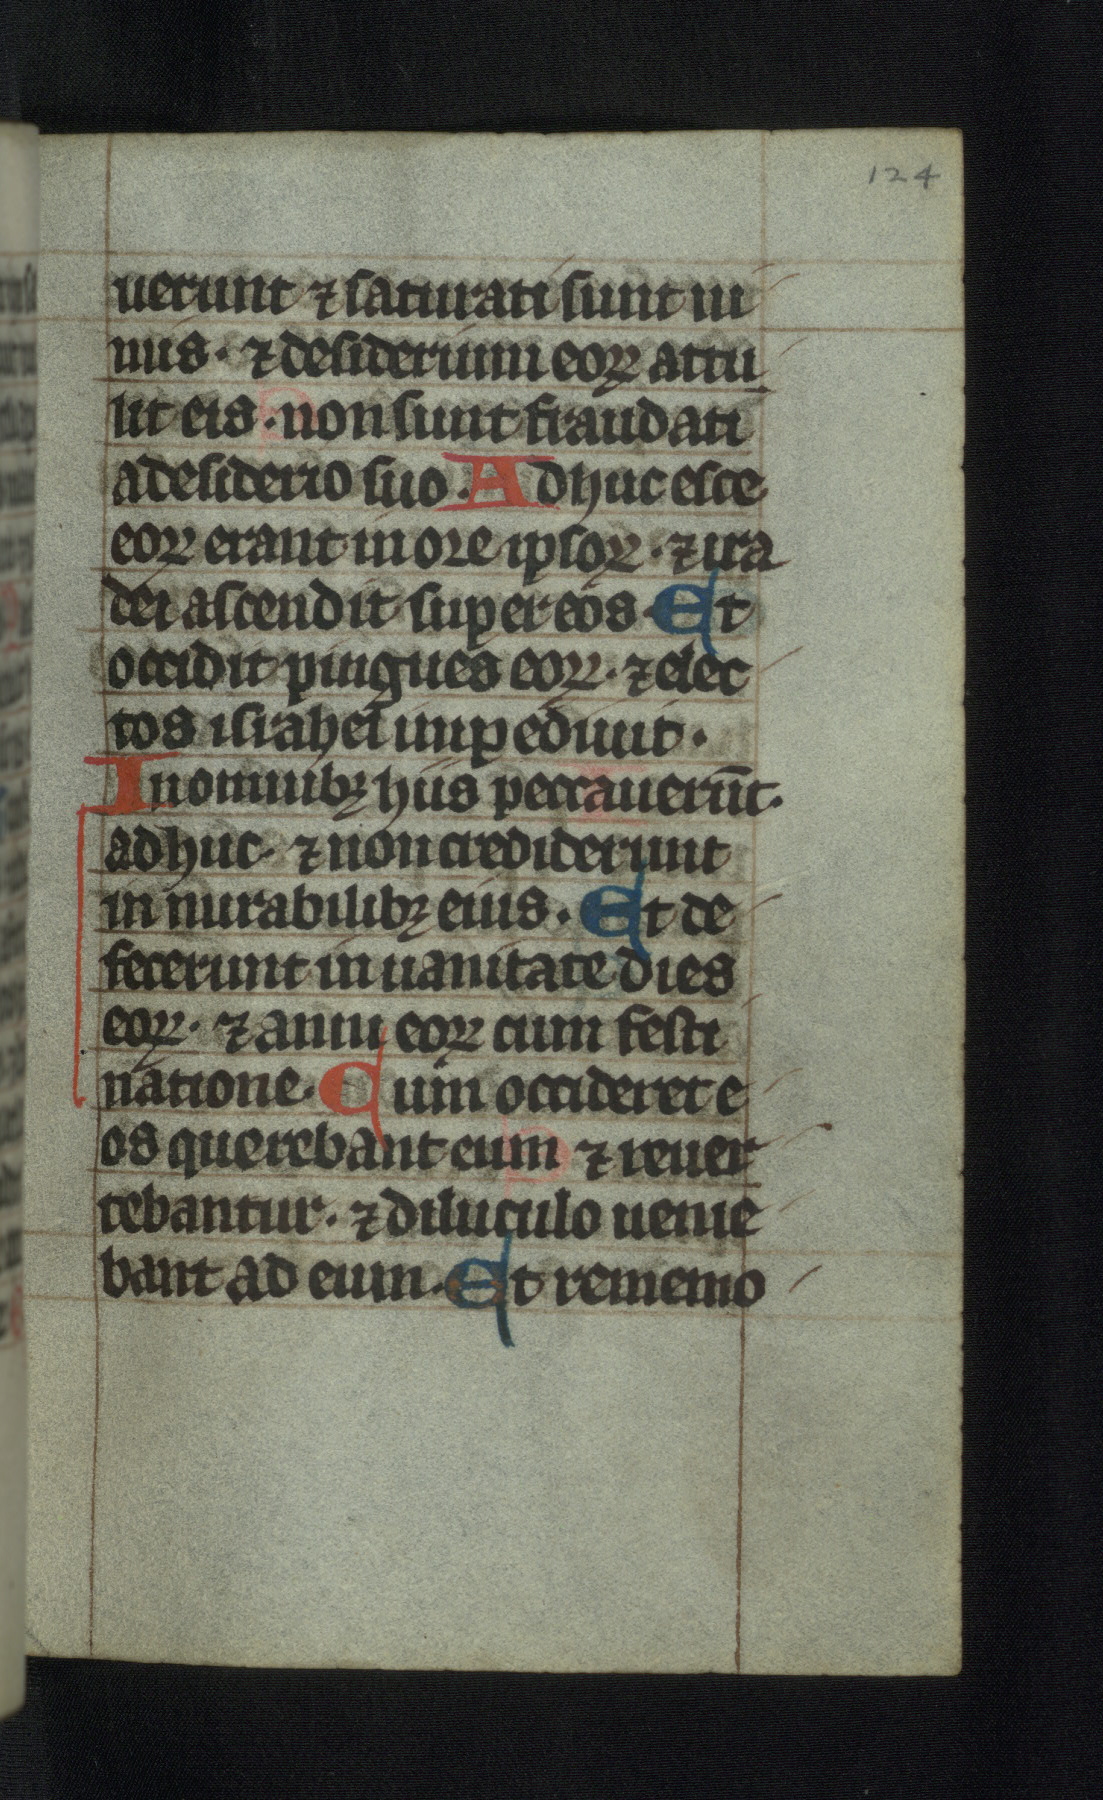 124
uerunt ⁊ saturati sunt ni
mis · ⁊ desiderium eoꝝ attu
lit eis · non sunt fraudati
a desiderio suo · Adhuc esce
eoꝝ erant in ore ipsoꝝ · ⁊ ira
dei ascendit super eos · Et
occidit pingues eoꝝ · ⁊ elec
tos israhel impediuit ·
In omnibꝫ hiis peccauerūt ·
adhuc · ⁊ non crediderunt
in mirabilibꝫ eius · Et de
fecerunt in uanitate dies
eoꝝ · ⁊ anni eoꝝ cum festi
natione · Cum occideret e
os querebant eum ⁊ reuer
tebantur · ⁊ diluculo uenie
bant ad eum · Et rememo